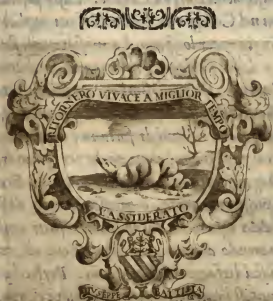 RITORNERÒ VIVACE A MIGLIOR TEMPO
L'ASSIDERATO
GIUSEPPE BATTISTA